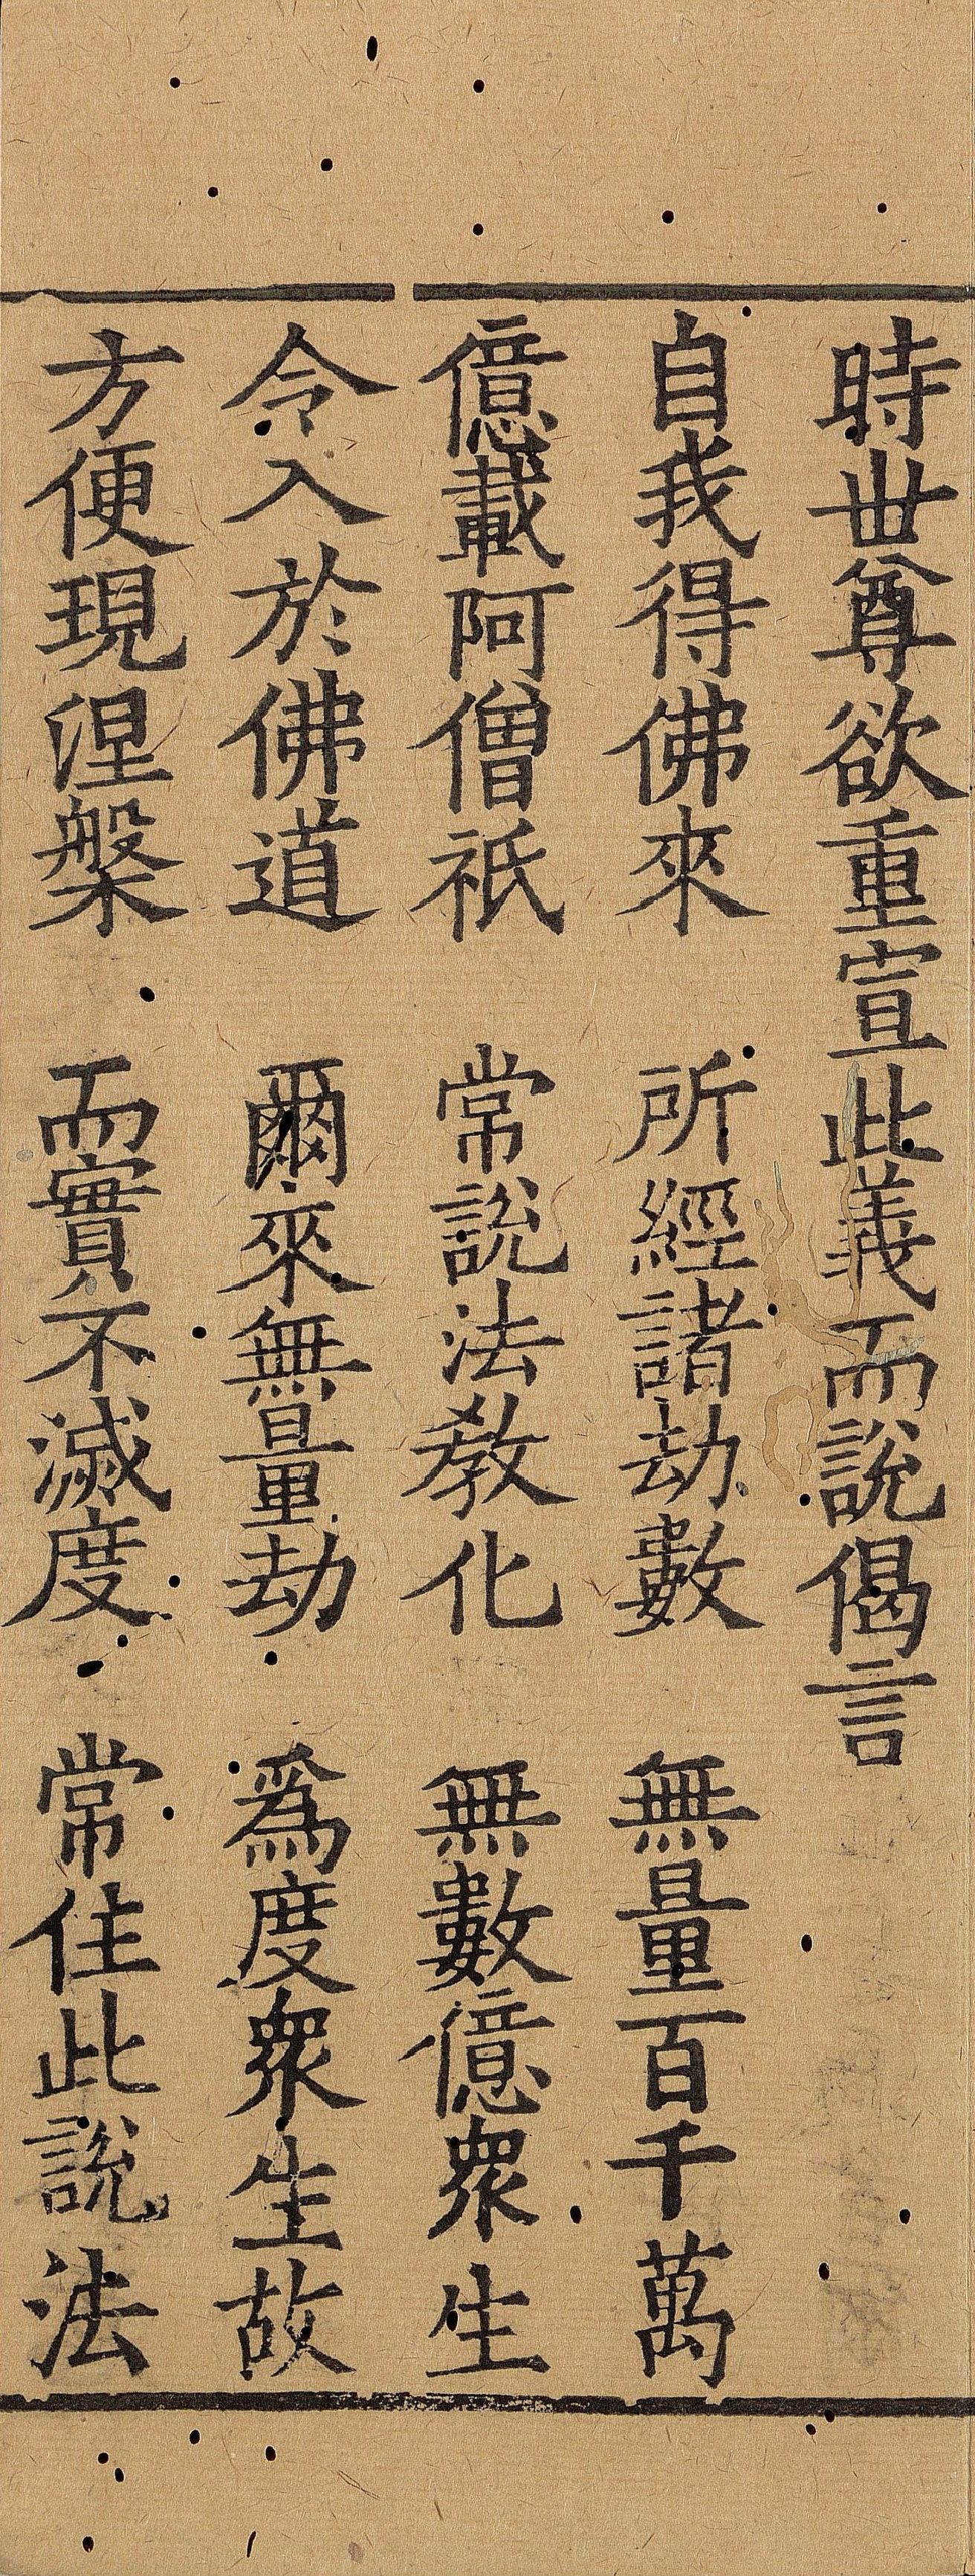 時世尊欲重宣此義而說偈言
自我得佛來　所經諸劫數　無量百千萬
億載阿僧祇　常說法教化　無數億衆生
令入於佛道　爾來無量劫　爲度衆生故
方便現涅槃　而實不滅度　常住此說法